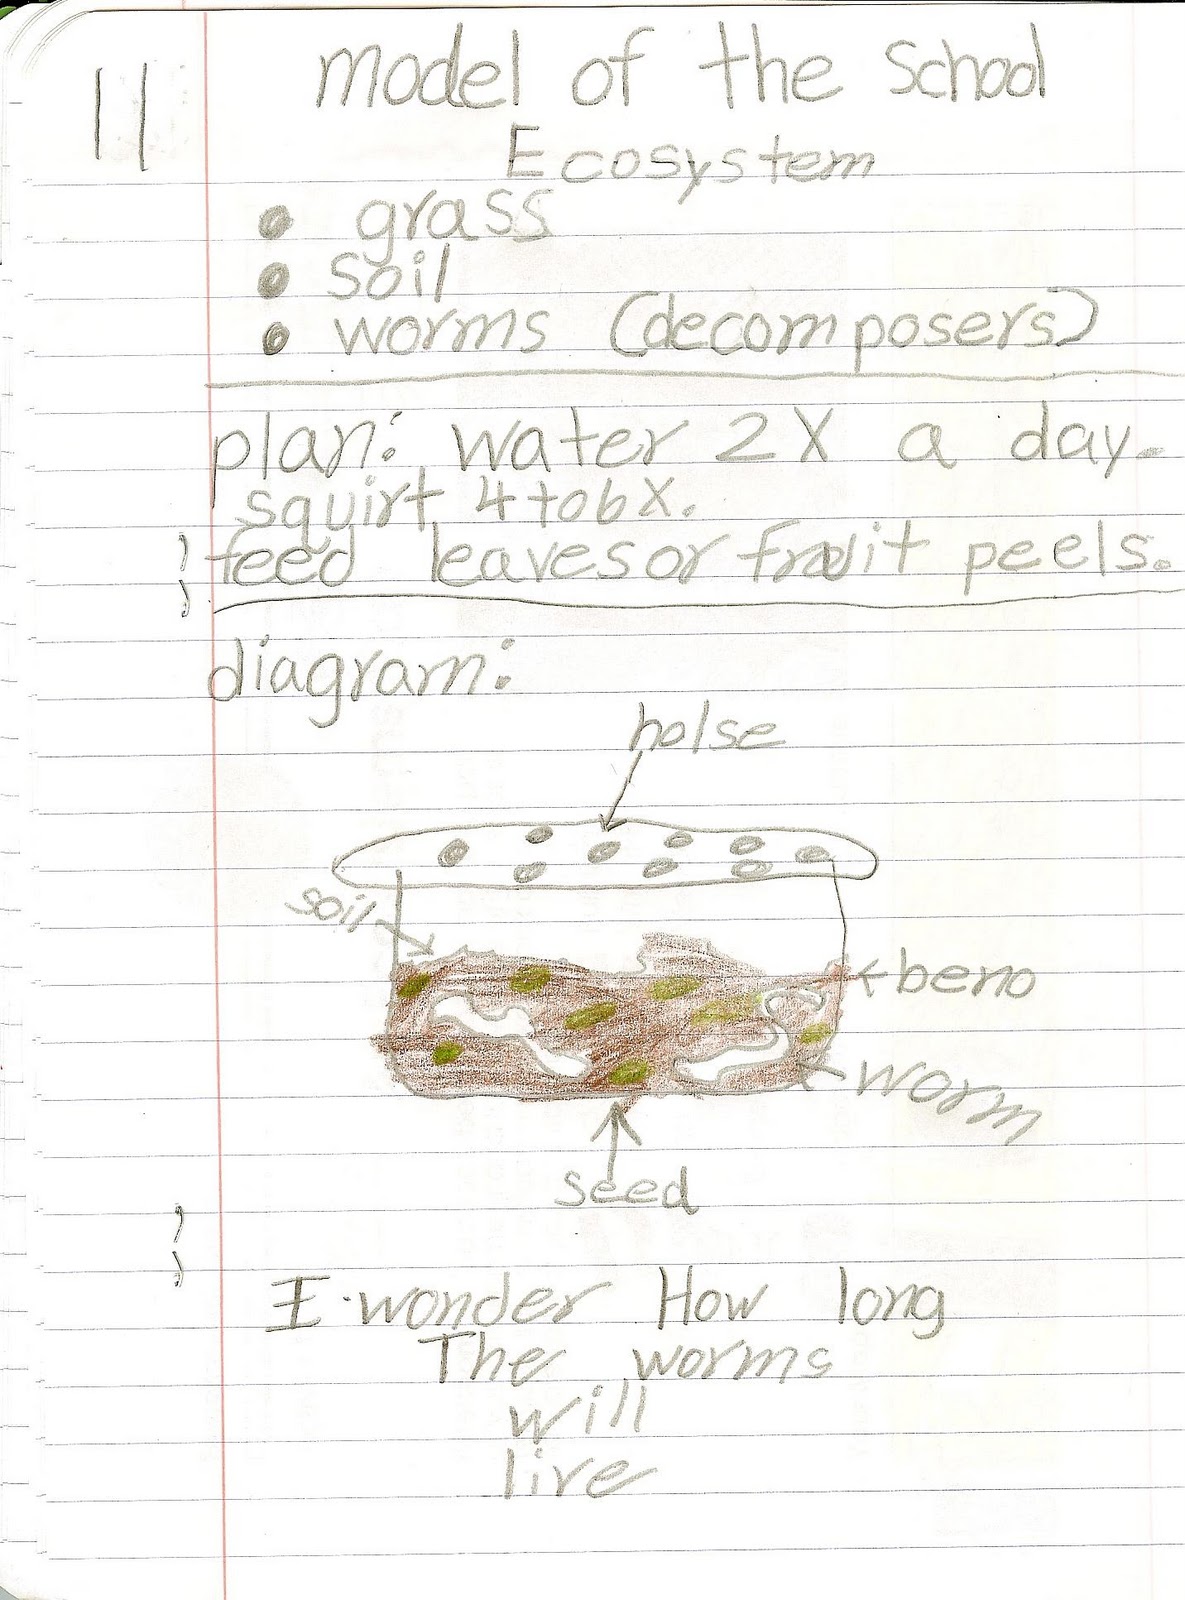 11
model of the School
Ecosystem
• grass
• soil
• worms (decomposers)
plan: water 2X a day.
squirt 4 to 6X.
feed leaves or fruit peels.
diagram:
holse
soil
beno
worm
seed
I wonder How long
The worms
will
live